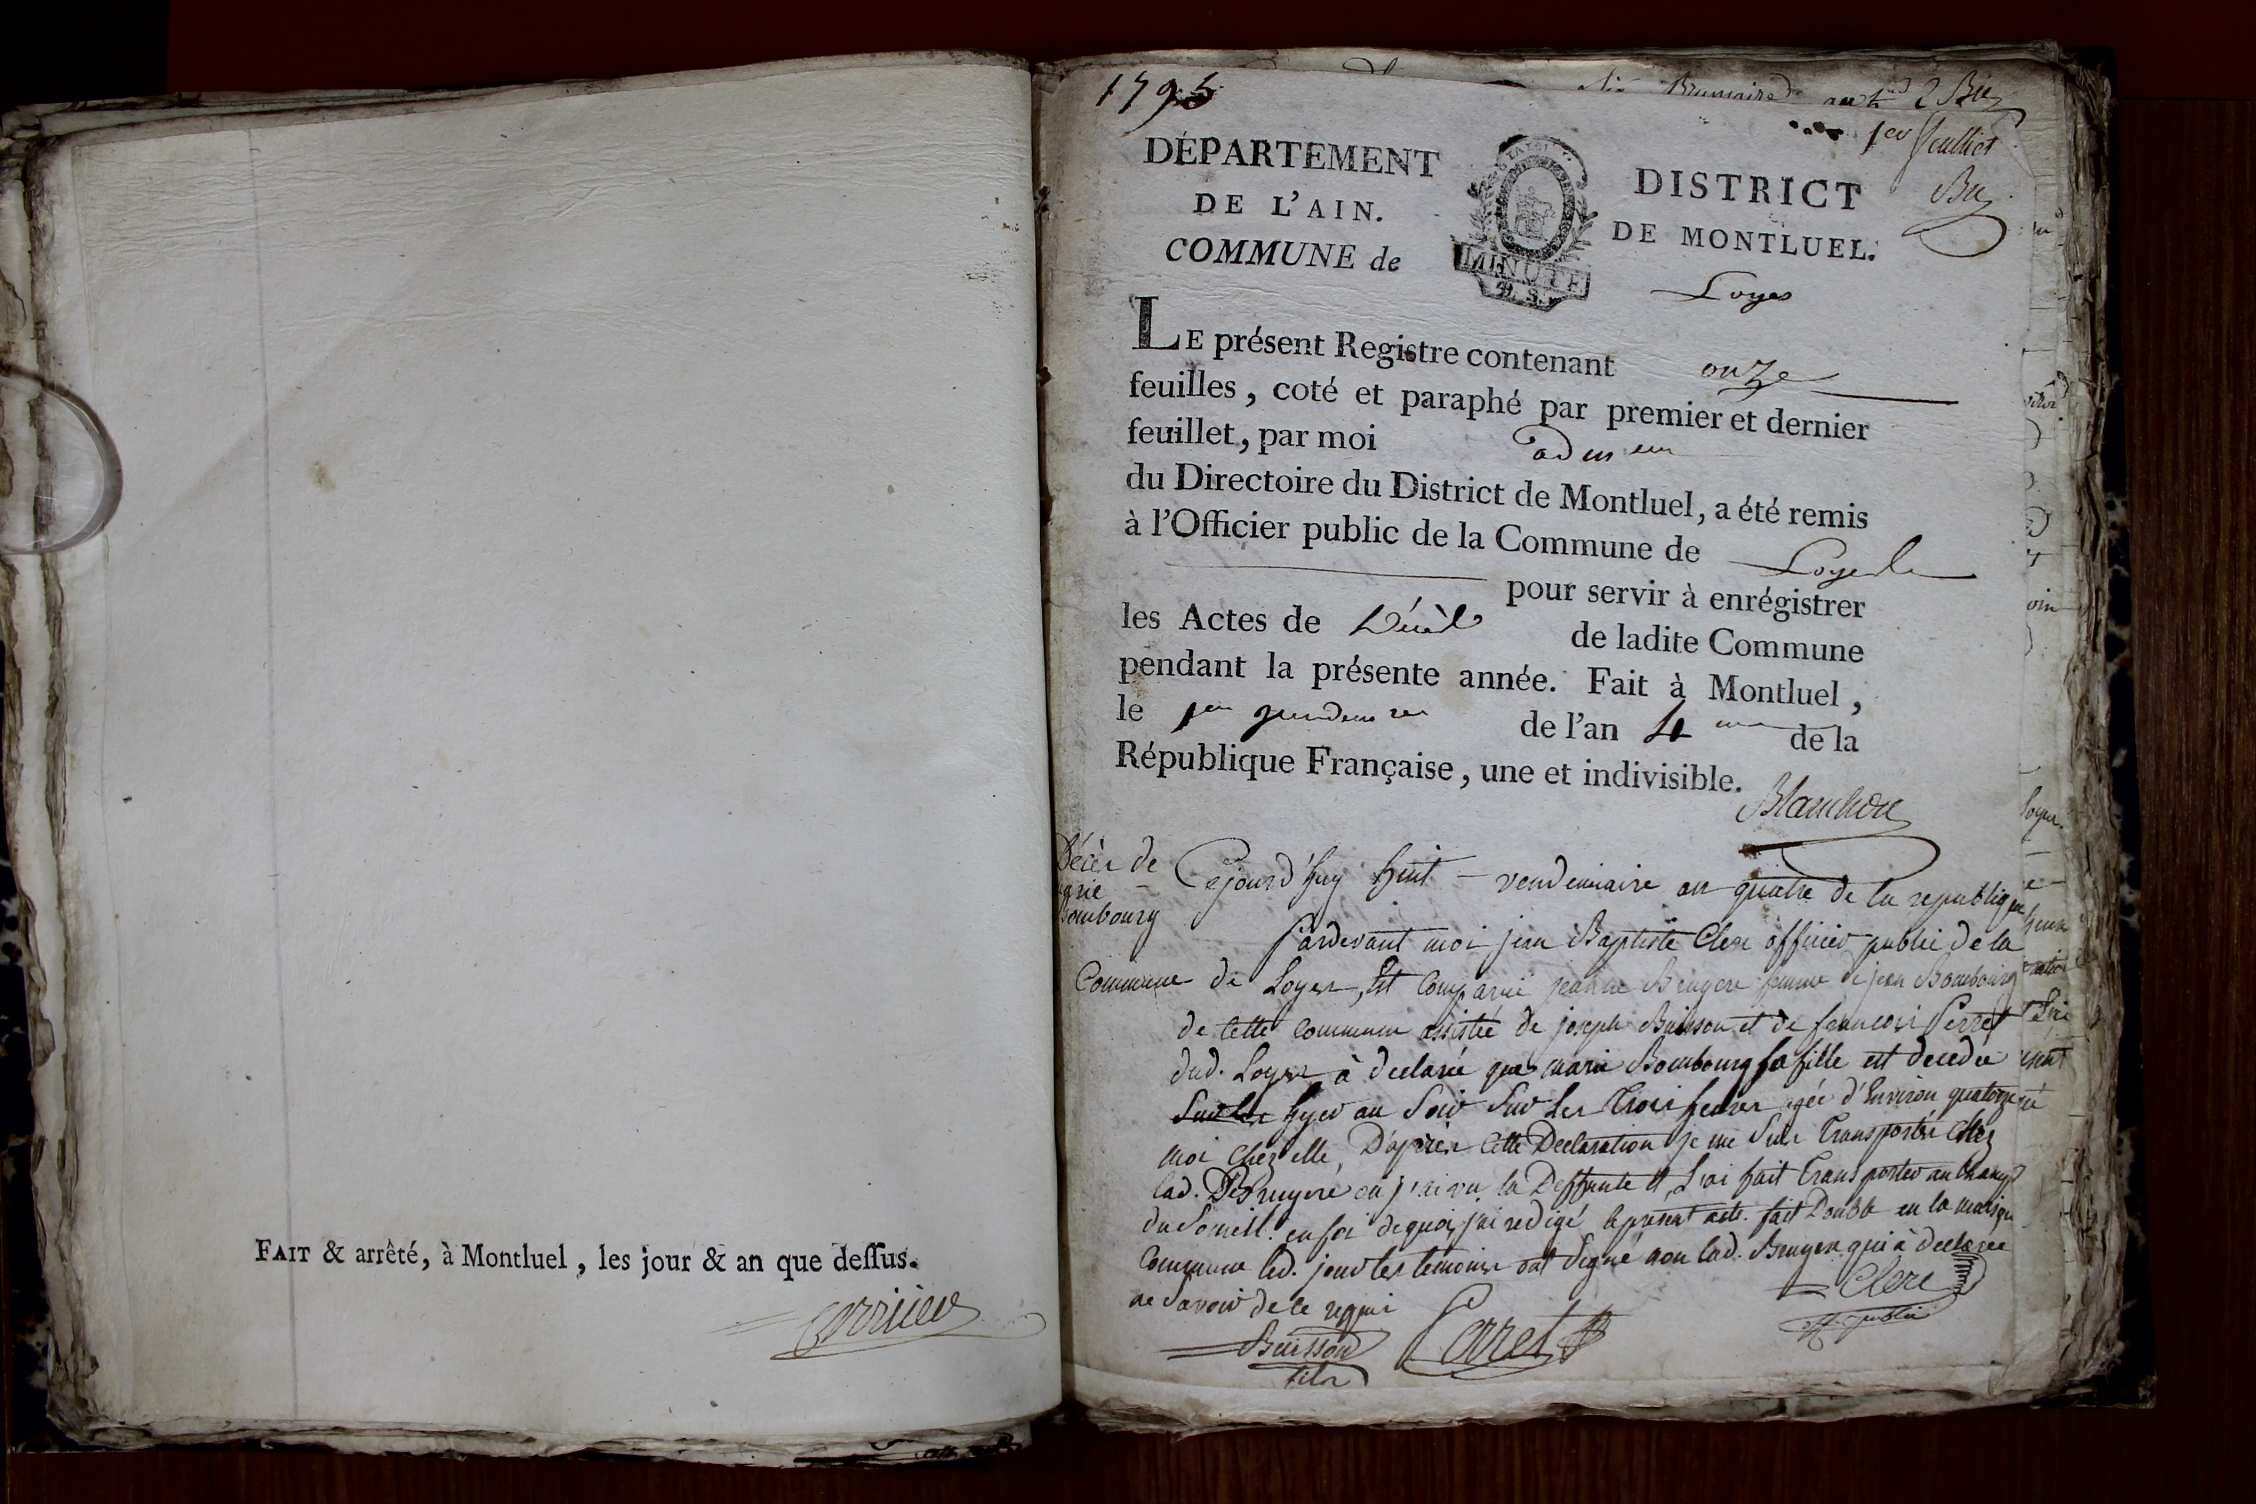 FAIT & arrêté, à Montluel, les jour & an que deſſus.
1795
1er feuillet
DÉPARTEMENT
DE L'AIN.
COMMUNE de
MINUTE
DISTRICT
DE MONTLUEL.
Loyes
LE présent Registre contenant onze
feuilles, coté et paraphé par premier et dernier
feuillet, par moi adm eur
du Directoire du District de Montluel, a été remis
à l'Officier public de la Commune de Loyes
pour servir à enrégistrer
les Actes de Décès de ladite Commune
pendant la présente année. Fait à Montluel,
le 1er vendem re de l'an 4 me de la
République Française, une et indivisible.
Blanchon
Décès de
marie
Bombourg
Cejourd'huy huit vendemiaire an quatre de la republique
pardevant moi jean Baptiste Clerc officier public de la
Commune de Loyes, Est Comparue jeanne Bruyere femme de jean Bombourg
de cette commune assistée de joseph Buisson et de francois Perret
dud. Loyes à declaré que marie Bombourg sa fille est decedée
Sur les hyer au Soir Sur les Trois heures agée d'Environ quatorze
moi chez elle, D'après cette Declaration je me Suis Transporté chez
lad. Bruyere ou j'ai vu la Deffunte et L'ai fait Transporter au champ
du Someil. en foi de quoi j'ai redigé le present acte. fait Double en la maison
Commune led. jour les temoins ont Signé non lad. Bruyere qui à declaree
ne Savoir de ce requi
Clerc
off. public
Buisson
fils
Perret